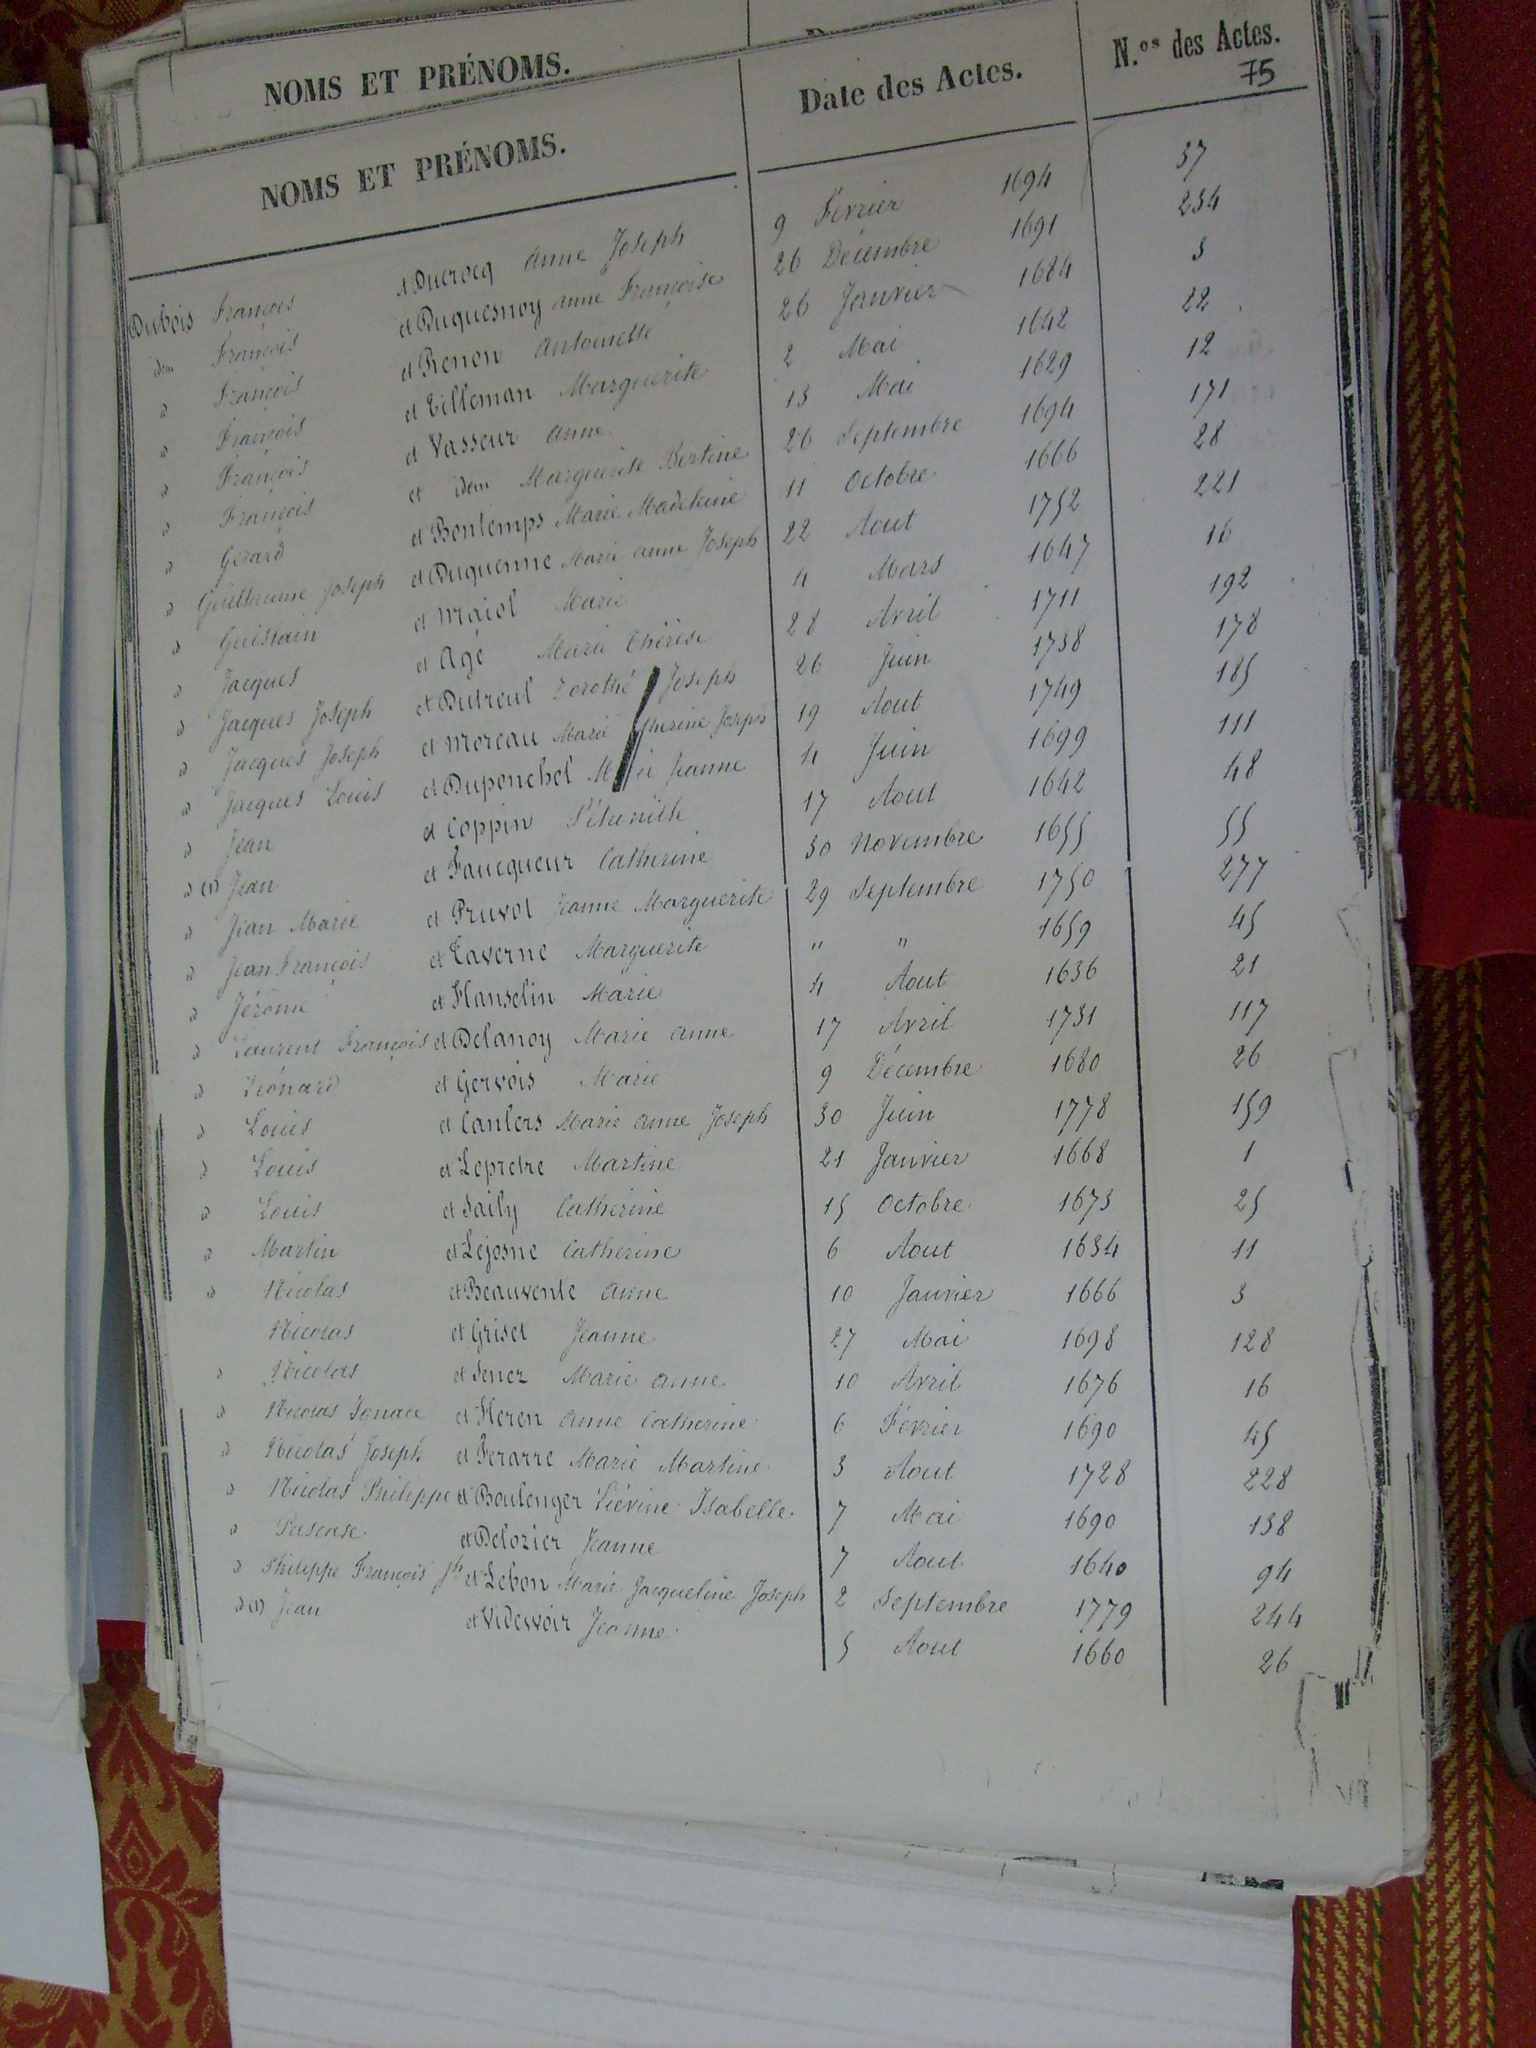 NOMS ET PRÉNOMS.
NOMS ET PRÉNOMS. Date des Actes. N.os des Actes.
75
Dubois François et Ducrocq Anne Joseph 9 Février 1694 37
idem François et Duquesnoy Anne Françoise 26 Décembre 1691 234
" François et Renon Antoinette 26 Janvier 1684 3
" François et Tilleman Marguerite 2 Mai 1642 22
" François et Vasseur Anne 13 Mai 1629 12
" François et idem Marguerite Bertine 26 Septembre 1694 171
" Gérard et Bontemps Marie Madeleine 11 Octobre 1666 28
" Guillaume Joseph et Duquenne Marie Anne Joseph 22 Aout 1752 221
" Guislain et Maiol Marie 4 Mars 1647 16
" Jacques et Agé Marie Thérèse 28 Avril 1711 192
" Jacques Joseph et Dutreul Dorothé Joseph 26 Juin 1738 178
" Jacques Joseph et Moreau Marie Catherine Joseph 19 Aout 1749 185
" Jacques Louis et Duponchel Marie Jeanne 4 Juin 1699 111
" Jean et Coppin Pétronille 17 Aout 1642 48
" (1) Jean et Faucqueur Catherine 30 Novembre 1655 55
" Jean Marie et Pruvot Jeanne Marguerite 29 Septembre 1750 277
" Jean François et Taverne Marguerite " " 1659 45
" Jérôme et Hanselin Marie 4 Aout 1636 21
" Laurent François et Delanoy Marie Anne 17 Avril 1731 117
" Léonard et Gervois Marie 9 Décembre 1680 26
" Louis et Canlers Marie Anne Joseph 30 Juin 1778 159
" Louis et Lepretre Martine 21 Janvier 1668 1
" Louis et Saily Catherine 15 Octobre 1673 25
" Martin et Lejosne Catherine 6 Aout 1634 11
" Nicolas et Beauvente Anne 10 Janvier 1666 3
Nicolas et Griset Jeanne 27 Mai 1698 128
" Nicolas et Senez Marie Anne 10 Avril 1676 16
" Nicolas Ignace et Heren Anne Catherine 6 Février 1690 45
" Nicolas Joseph et Ferarre Marie Martine 3 Aout 1728 228
" Nicolas Philippe et Boulenger Liévine Isabelle 7 Mai 1690 138
" Pascase et Delozier Jeanne 7 Aout 1640 94
" Philippe François Jh et Lebon Marie Jacqueline Joseph 2 Septembre 1779 244
" (1) Jean et Videwoir Jeanne 5 Aout 1660 26